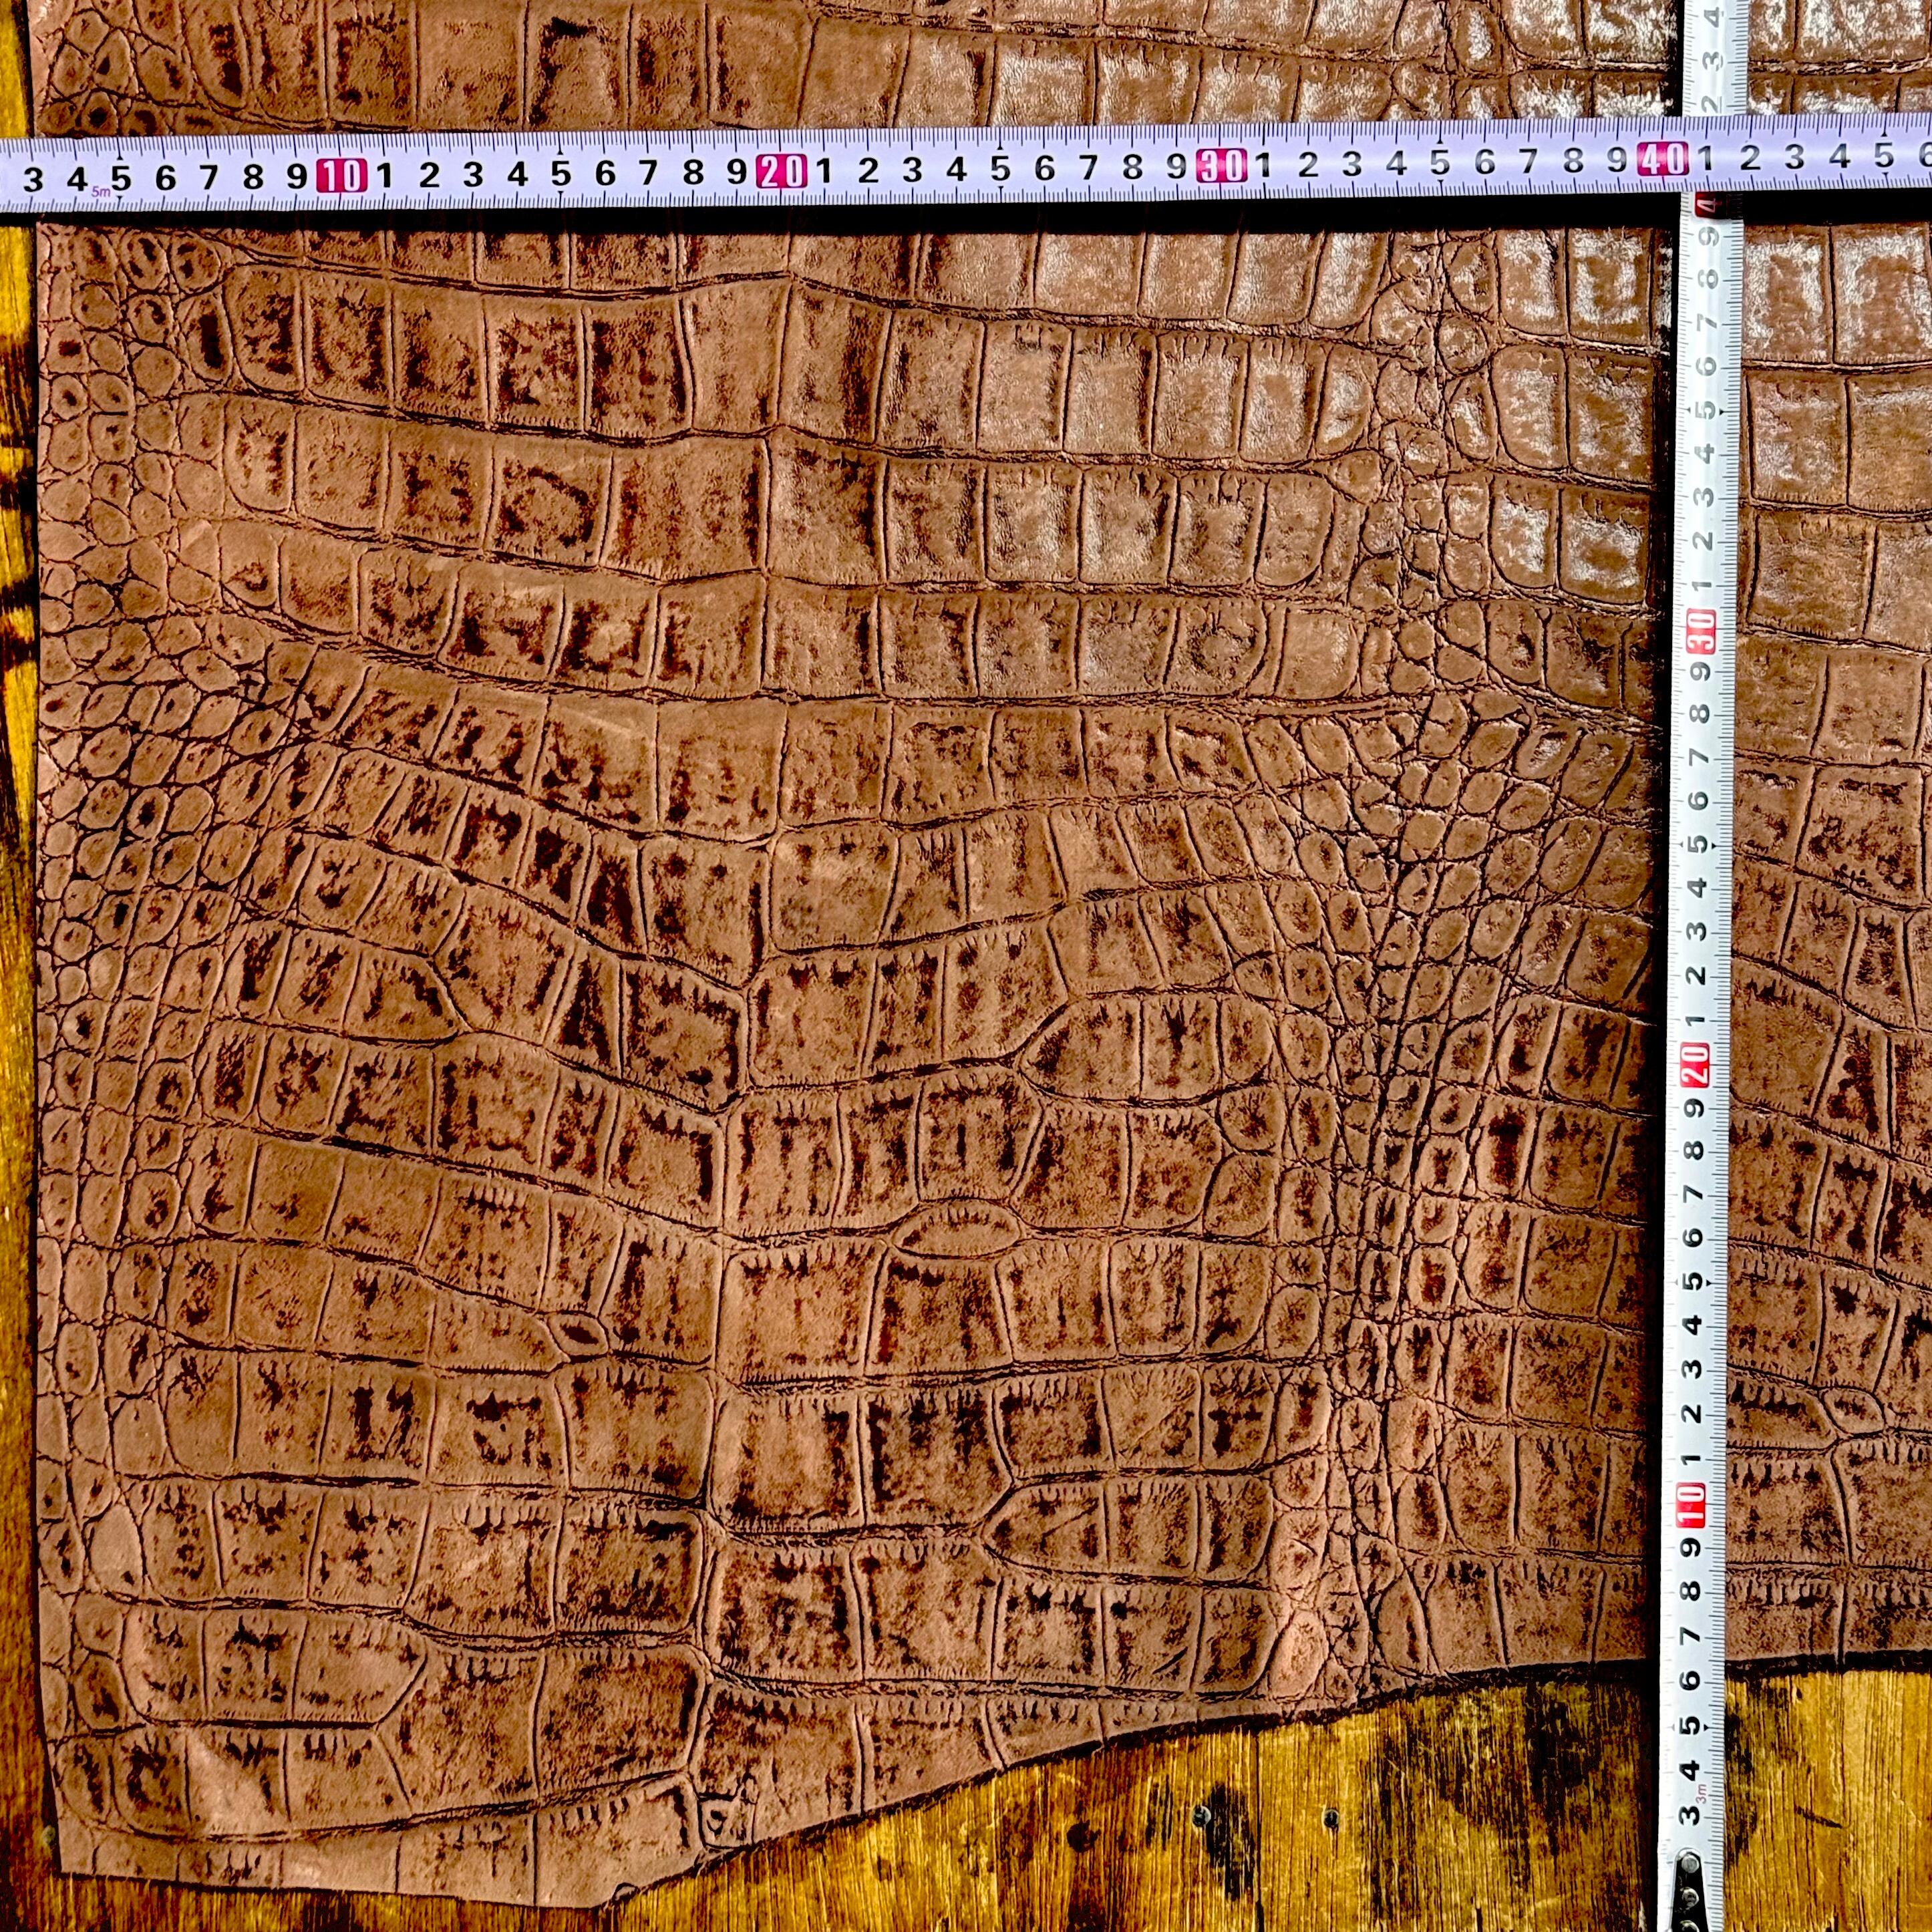 3 4 5m 5 6 7 8 9 10 1 2 3 4 5 6 7 8 9 20 1 2 3 4 5 6 7 8 9 30 1 2 3 4 5 6 7 8 9 40 1 2 3 4 5 6
4 3 2
4 9 8 7 6 5 4 3 2 1 30 9 8 7 6 5 4 3 2 1 20 9 8 7 6 5 4 3 2 1 10 9 8 7 6 5 4 3m 3